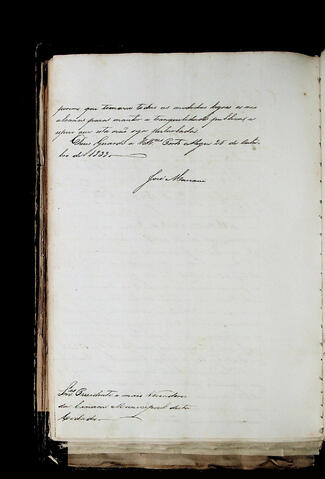 porem que tomara todas as medidas legaes ao seo
alcance para manter a tranquilidade publica e
espera que esta não seja perturbada.
Deus Guarde a Vossas Porto Alegre 25 de Outu-
bro de 1833.
José Mariani
Snres Presidente e mais Vereadores
da Camara Municipal desta
Cidade